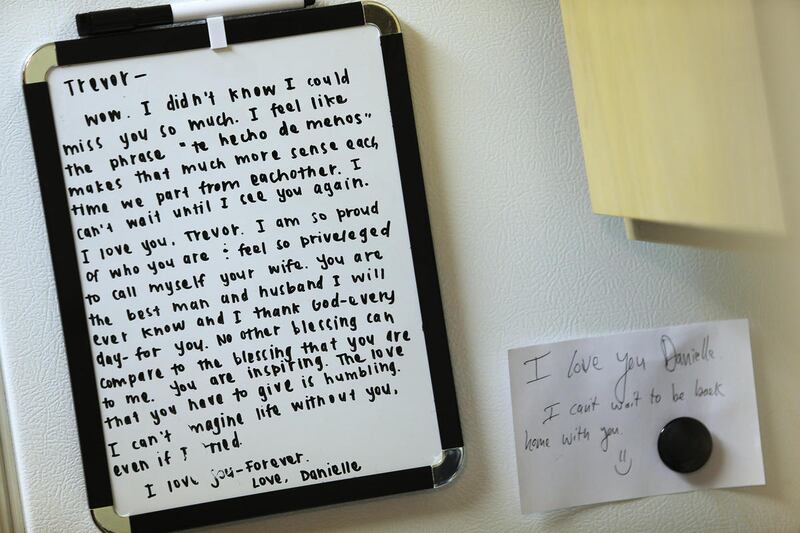 Trevor-
wow. I didn't know I could
miss you so much. I feel like
the phrase "te hecho de menos"
makes that much more sense each
time we part from eachother. I
can't wait until I see you again.
I love you, Trevor. I am so proud
of who you are : feel so priveleged
to call myself your wife. You are
the best man and husband I will
ever know and I thank God-every
day-for you. No other blessing can
compare to the blessing that you are
to me. You are inspiring. The love
that you have to give is humbling.
I can't magine life without you,
even if I tried.
I love you-Forever.
Love, Danielle
I love you Danielle.
I can't wait to be back
home with you.